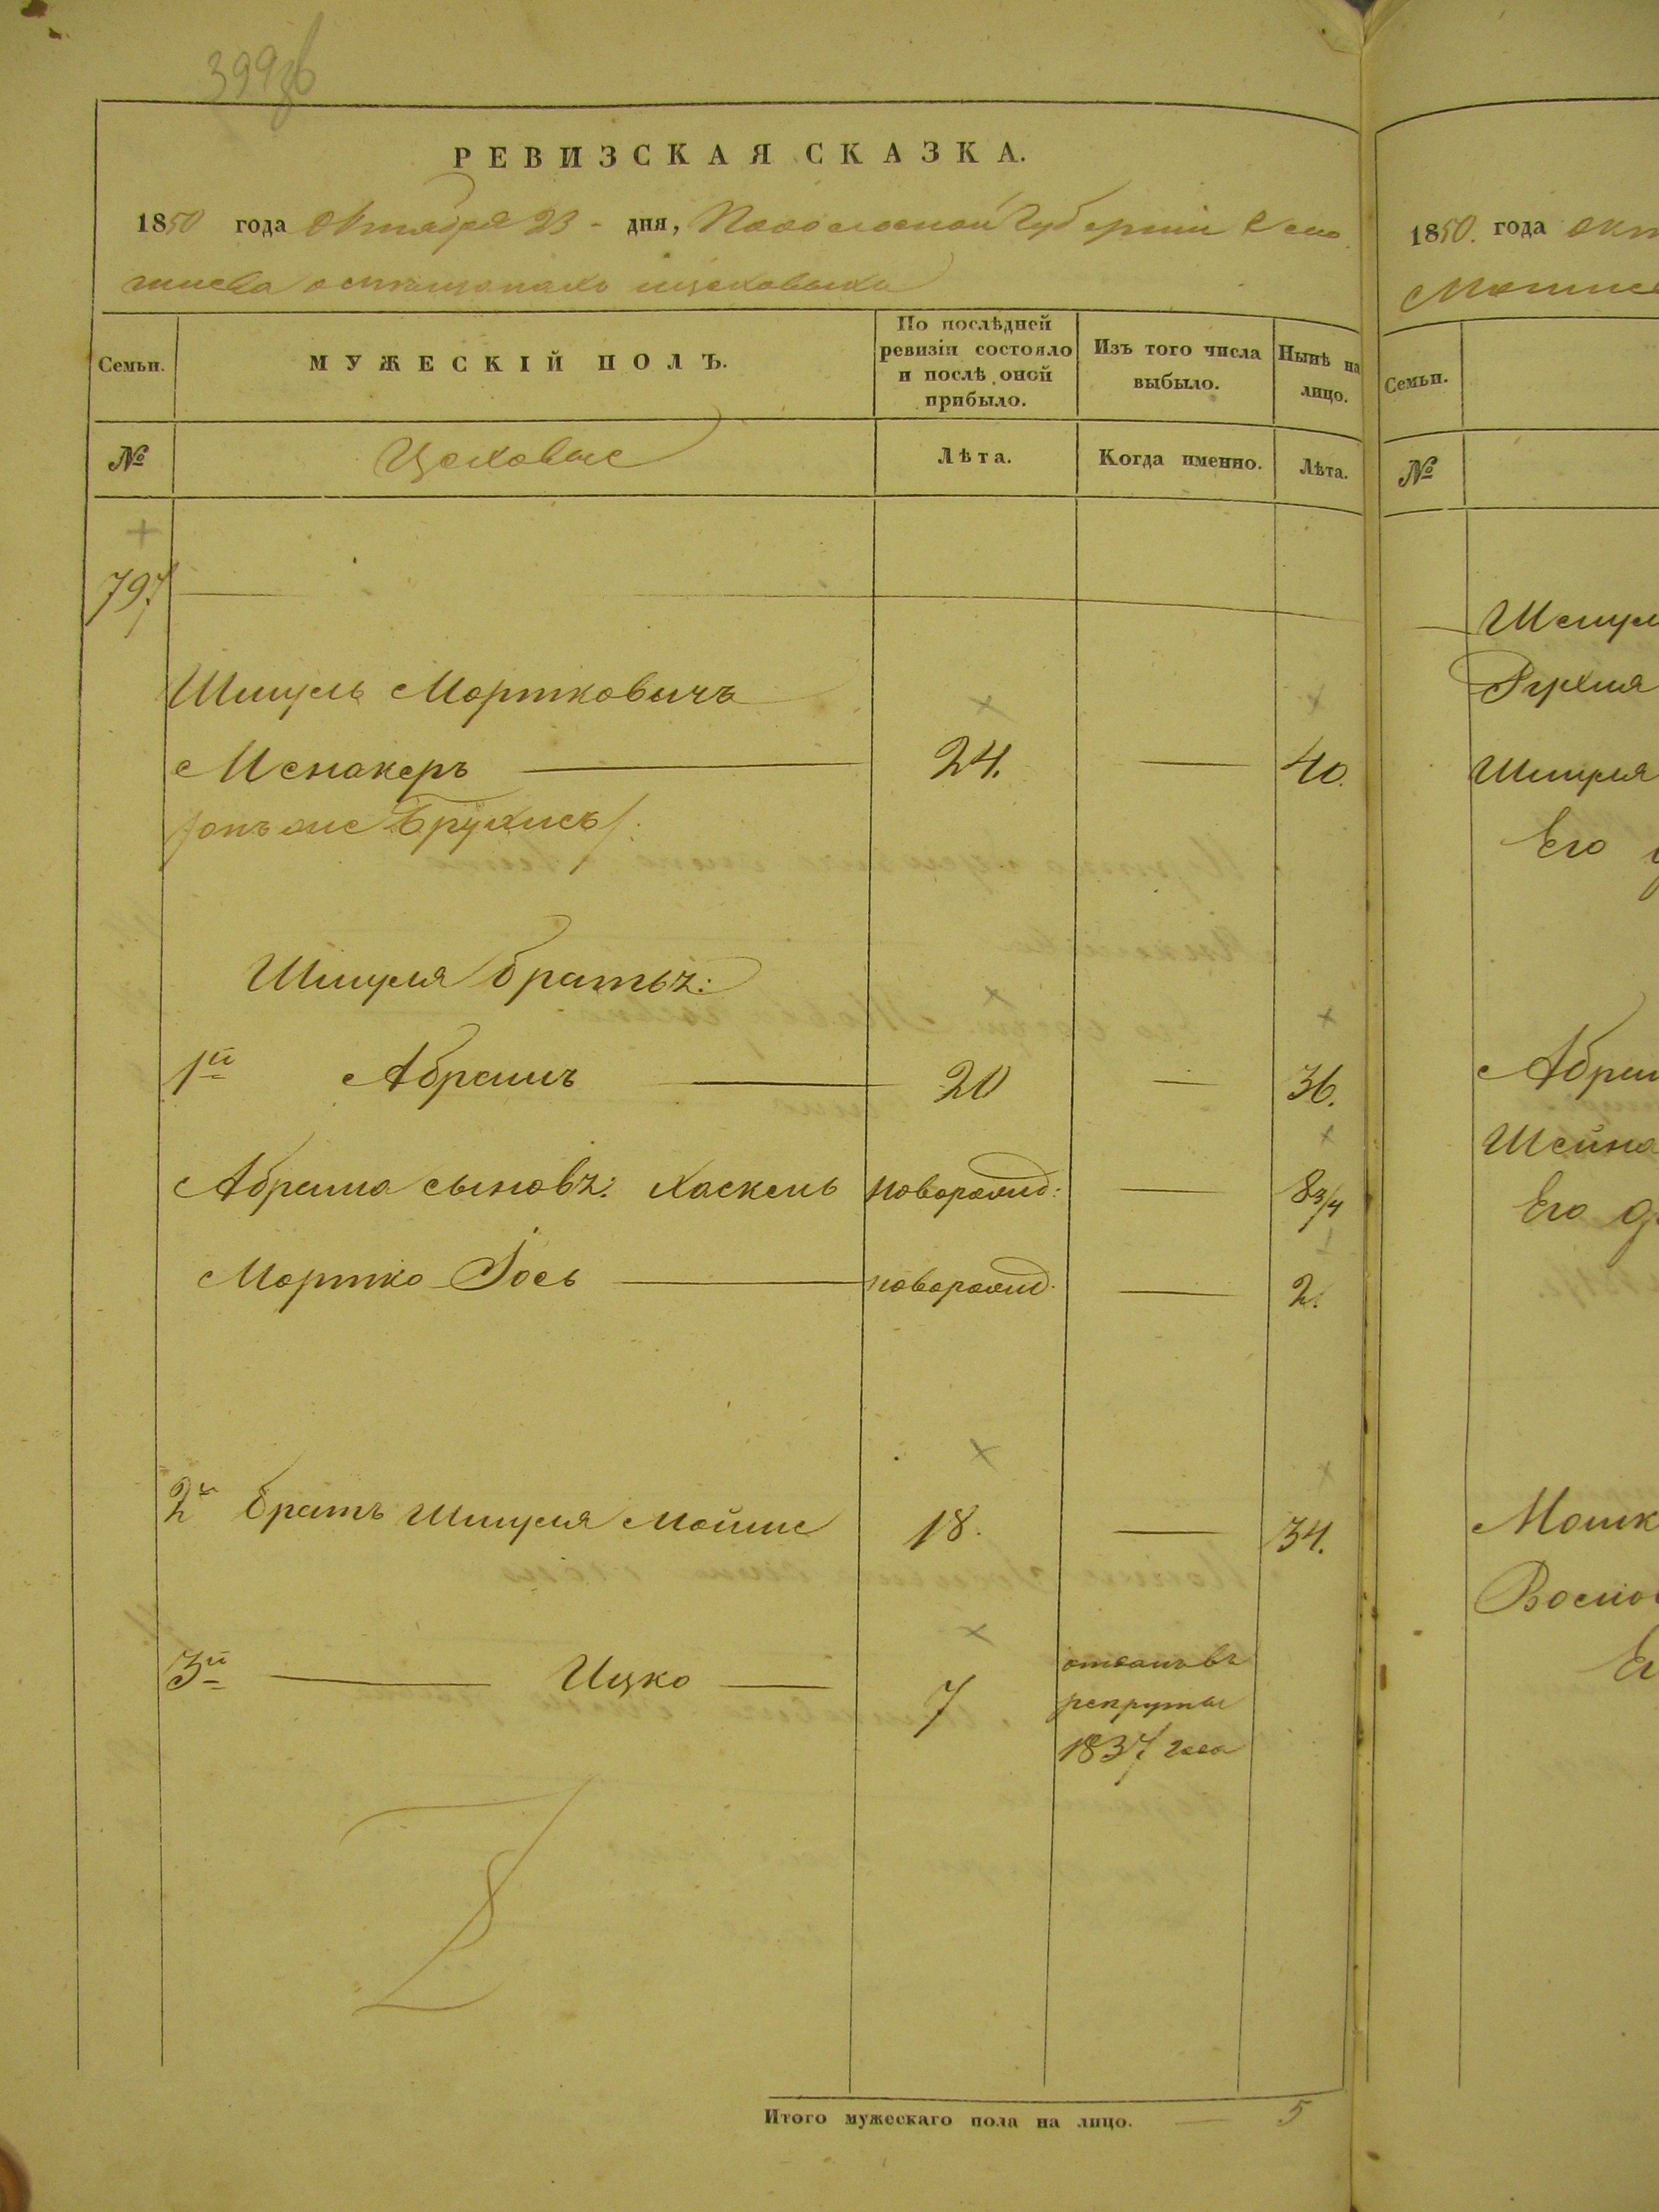 399об
РЕВИЗСКАЯ СКАЗКА.
1850 года Октября 23 - дня, Подольской Губерніи
цеховыхъ
Семьи.
МУЖЕСКІЙ ПОЛЪ.
По послѣдней ревизіи состояло и послѣ оной прибыло.
Изъ того числа выбыло.
Нынѣ на лицо.
№
Цеховые
Лѣта.
Когда именно.
Лѣта.
797
Шмуль Мортковичъ
Менакеръ 24. 40.
/онъ же Брухисъ/.
Шмуля братьъ:
1й Абрамъ 20 36.
Абрама сыновъ: Хаскель новорожд: 8 3/4
Мортко Іось новорожд. 2.
2й братъ Шмуля Мойше 18. 34.
3й Ицко 7 отданъ въ
рекруты
1837 года
Итого мужескаго пола на лицо. 5
1850. года
Семьи.
№
Шмуля
Его
Шейна
Его